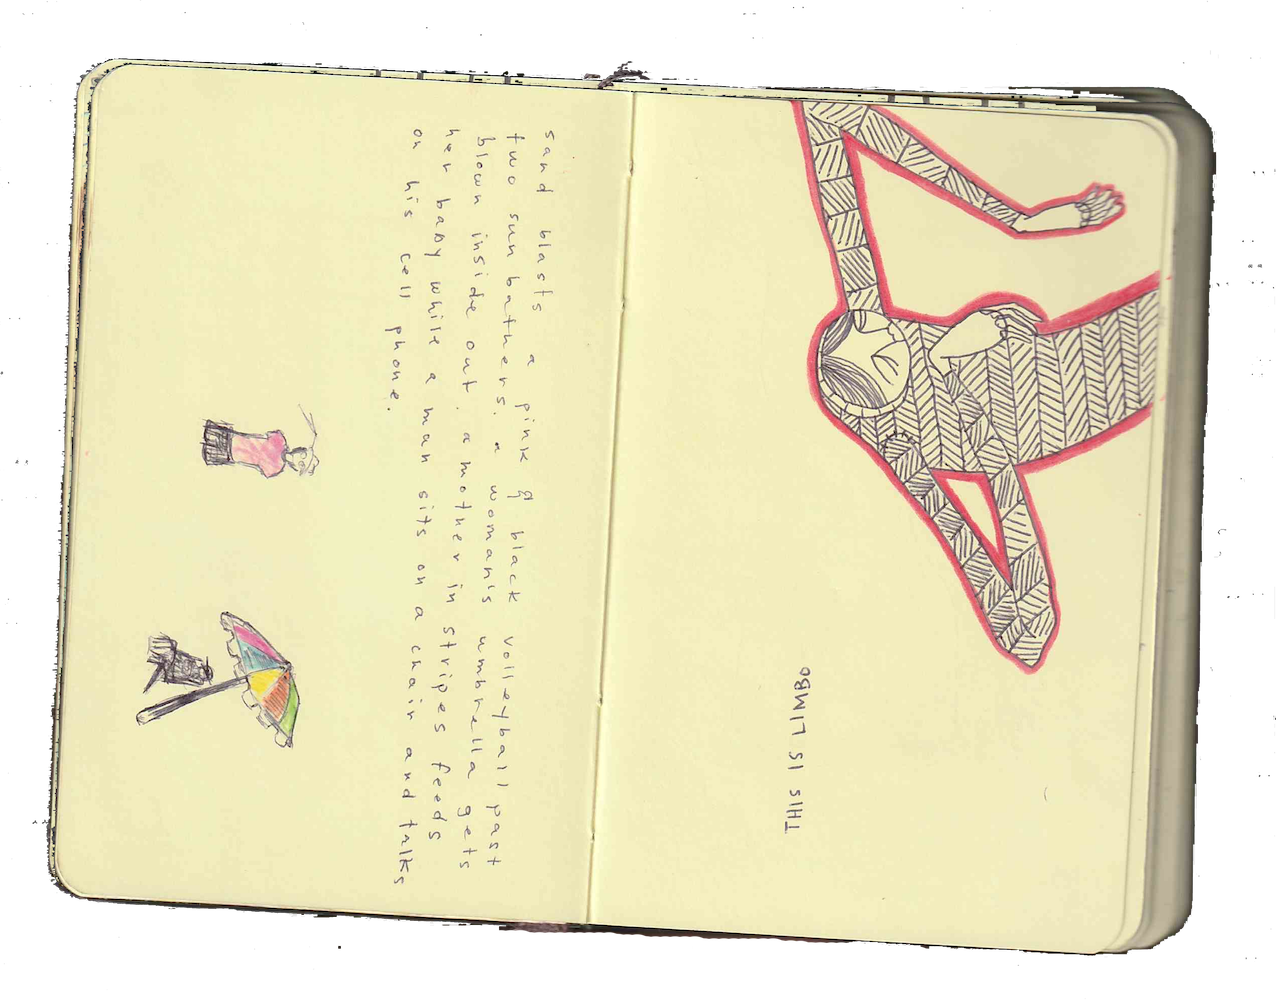 sand blasts a pink & black volleyball past
two sun bathers. a woman's umbrella gets
blown inside out. a mother in stripes feeds
her baby while a man sits on a chair and talks
on his cell phone.
THIS IS LIMBO